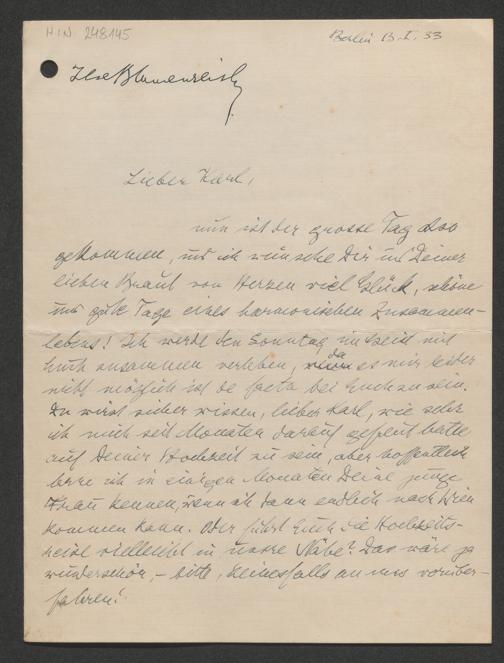 HIN 248145
Berlin 13.I.33
Ilse Blumenreich
Lieber Karl,
nun ist der grosse Tag also
gekommen, und ich wünsche Dir und Deiner
lieben Braut von Herzen viel Glück, schöne
und gute Tage eines harmonischen Zusammen-
lebens! Ich werde den Sonntag im Geist mit
Euch zusammen verleben, da es mir leider
nicht möglich ist de facto bei Euch zu sein.
Du wirst sicher wissen, lieber Karl, wie sehr
ich mich seit Monaten darauf gefreut hatte
auf Deiner Hochzeit zu sein, aber hoffentlich
lerne ich in einigen Monaten Deine junge
Frau kennen, wenn ich dann endlich nach Wien
kommen kann. Oder führt Euch die Hochzeits-
reise vielleicht in unsre Nähe? Das wäre ja
wunderschön, – bitte, keinesfalls an uns vorüber-
fahren!